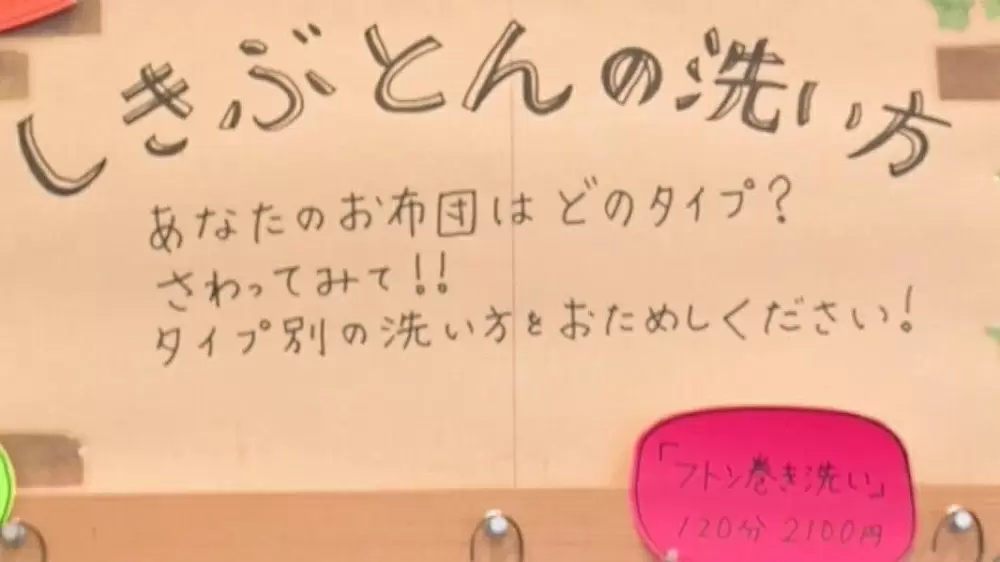 しきぶとんの洗い方
あなたのお布団はどのタイプ?
さわってみて!!
タイプ別の洗い方をおためしください!
「フトン巻き洗い」
120分 2100円